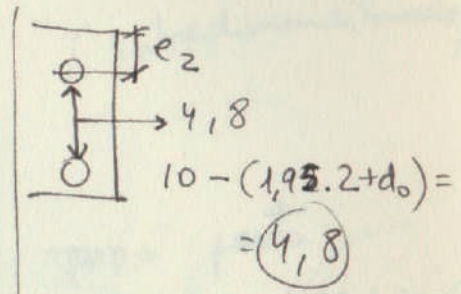 e₂
4,8
10 - (1,95.2+d₀) =
= 4,8